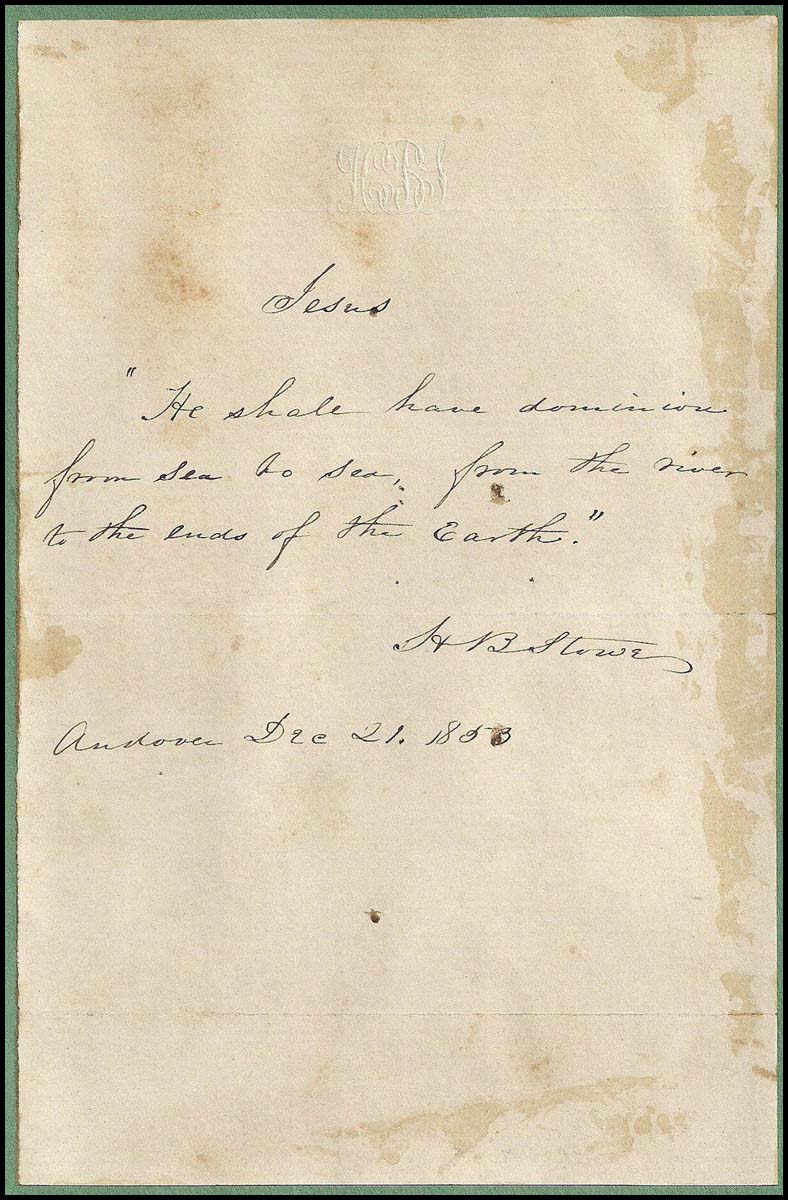 HBS
Jesus
"He shall have dominion
from sea to sea, from the river
to the ends of the Earth."
H B Stowe
Andover Dec 21. 1853